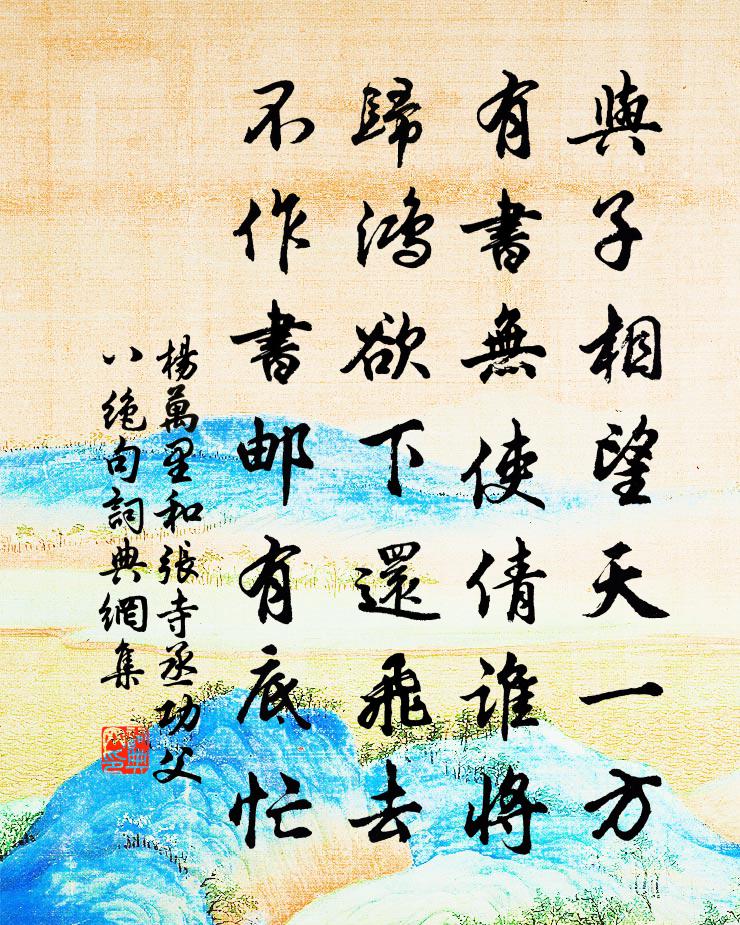 與子相望天一方
有書無使倩誰將
歸鴻欲下還飛去
不作書邮有底忙
楊萬里和張寺丞功父
八絶句詞典網集